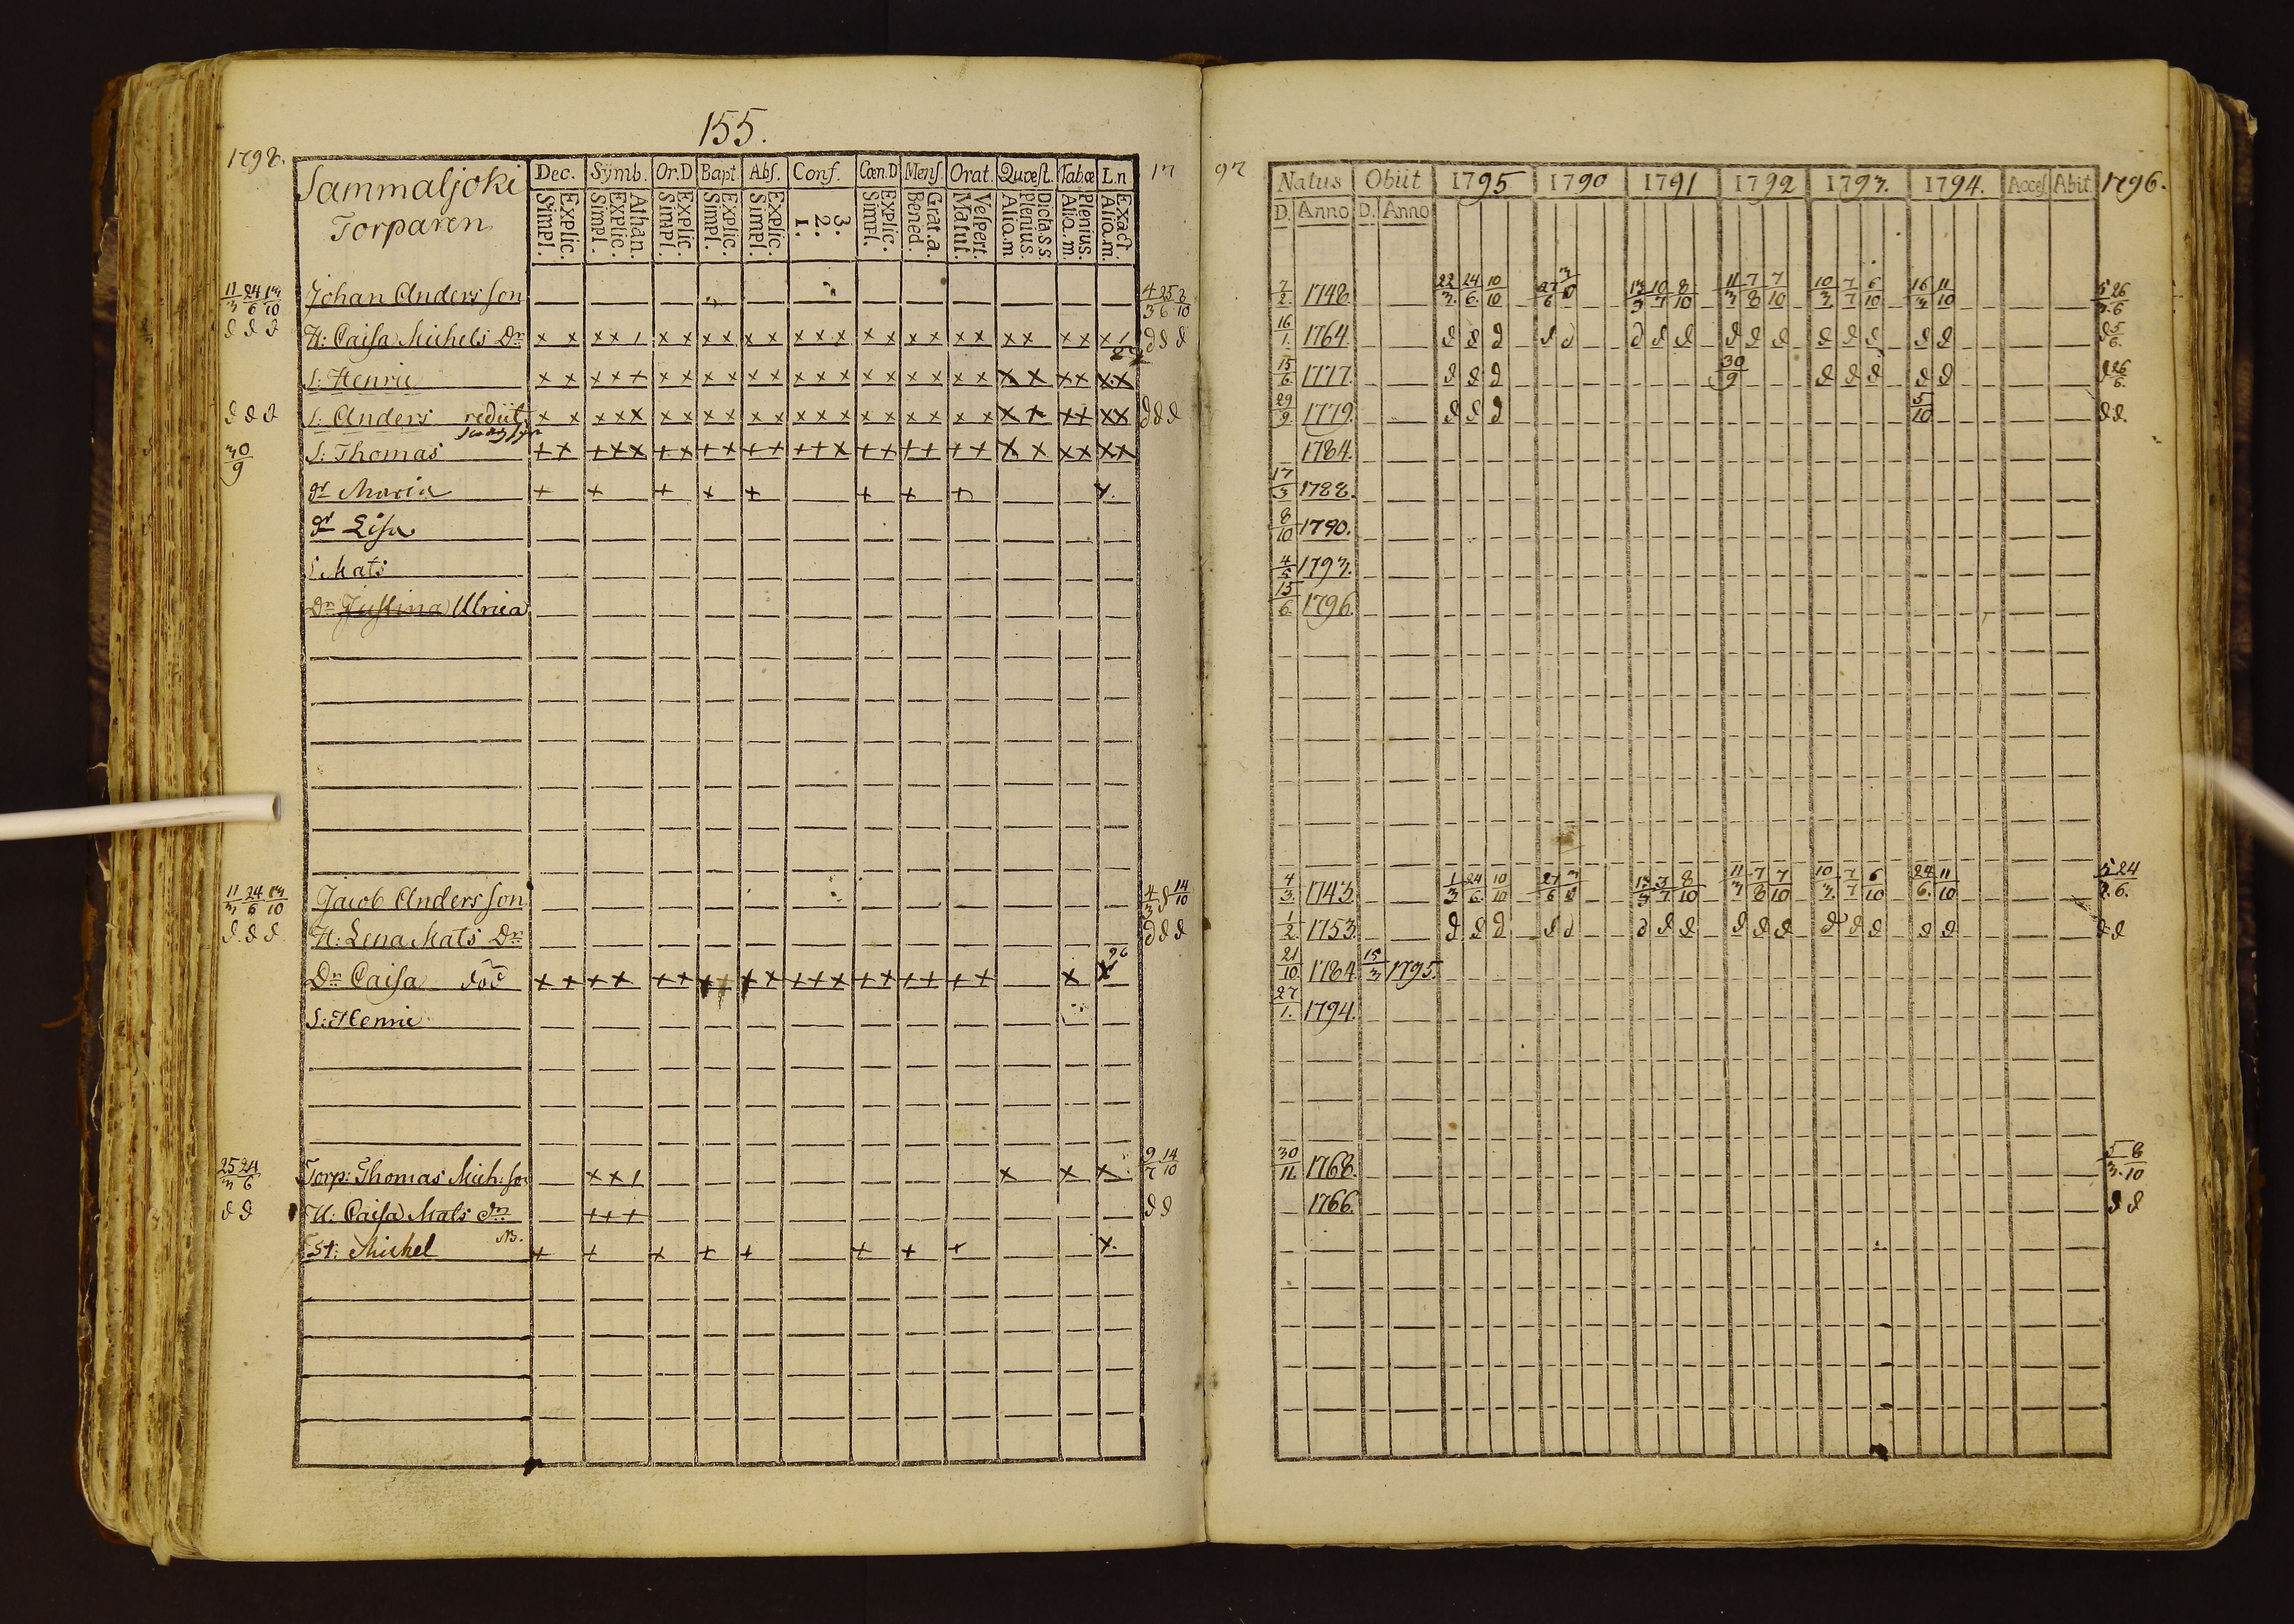 155.
1798.
Sammaljoki
Torparen
Dec. Symb. Or.D Bapt Abs. Conf. Cœn.D Mens. Orat. Quæst. Tabæ L.n
Explic. Simpl. Athan. Explic. Simpl. Explic. Simpl. Explic. Simpl. Explic. Simpl. 3. 2. 1. Explic. Simpl. Grat.a. Bened. Vespert. Matut. Dicta s s. Plenius. Aliq.m Plenius. Aliq.m. Exact. Aliq.m.
17 97
Natus Obiit 1795 1790 1791 1792 1793. 1794. Acces Abit 1796.
D. Anno D. Anno
11/3 24/6 13/10 Johan Andersson 7/2. 1748. 22/3. 24/6. 10/10 13/3 10/7 8/10 11/3 7/8 7/10 10/3 7/7 6/10 16/3 11/10
d d d H: Caisa Michels Dr x x x x / x x x x x x x x x x x x x x x x x x x x / d d d 16/1. 1764. d d d d d d d d d d d d d d d d
S: Henric x x x x x x x x x x x x x x x x x x x x x x x x x x x 15/6. 1777. d d d 30/9 d d d d d
d d d S: Anders rediit x x x x x x x x x x x x x x x x x x x x x x x + + x x d d d 29/9. 1779. d d d 5/10 d d.
30/9 S: Thomas + x + x x + x + x + + + + x + + + + + + x x x x x x 1784.
dr Maria + + + + + + + + x. 17/3 1788.
dr Lisa 8/10 1790.
S Mats 4/5 1793.
Dr Justina Ulrica 15/6 1796.
11/3 24/6 13/10 Jacob Andersson 4/3 d 14/10 4/3. 1743. 1/3 24/6. 10/10 13/3 7/7 8/10 11/3 7/8 7/10 10/3. 7/7 6/10 24/6. 11/10
d. d d H: Lena Mats Dr d d d 1/2. 1753. d d d d d d d d d d d d d d d d d d
96
Dr Caisa död 21/10. 1784. 15/3 1795.
S: Henric 27/1. 1794.
25/3 24/6 Torp: Thomas Mich:son x x / x x x. 9/7 14/10 30/11. 1768. 5/3. 8/10
d d H: Caisa Mats dr + + + d d 1766. d d
St: Michel NB. + + + + + + + + x.